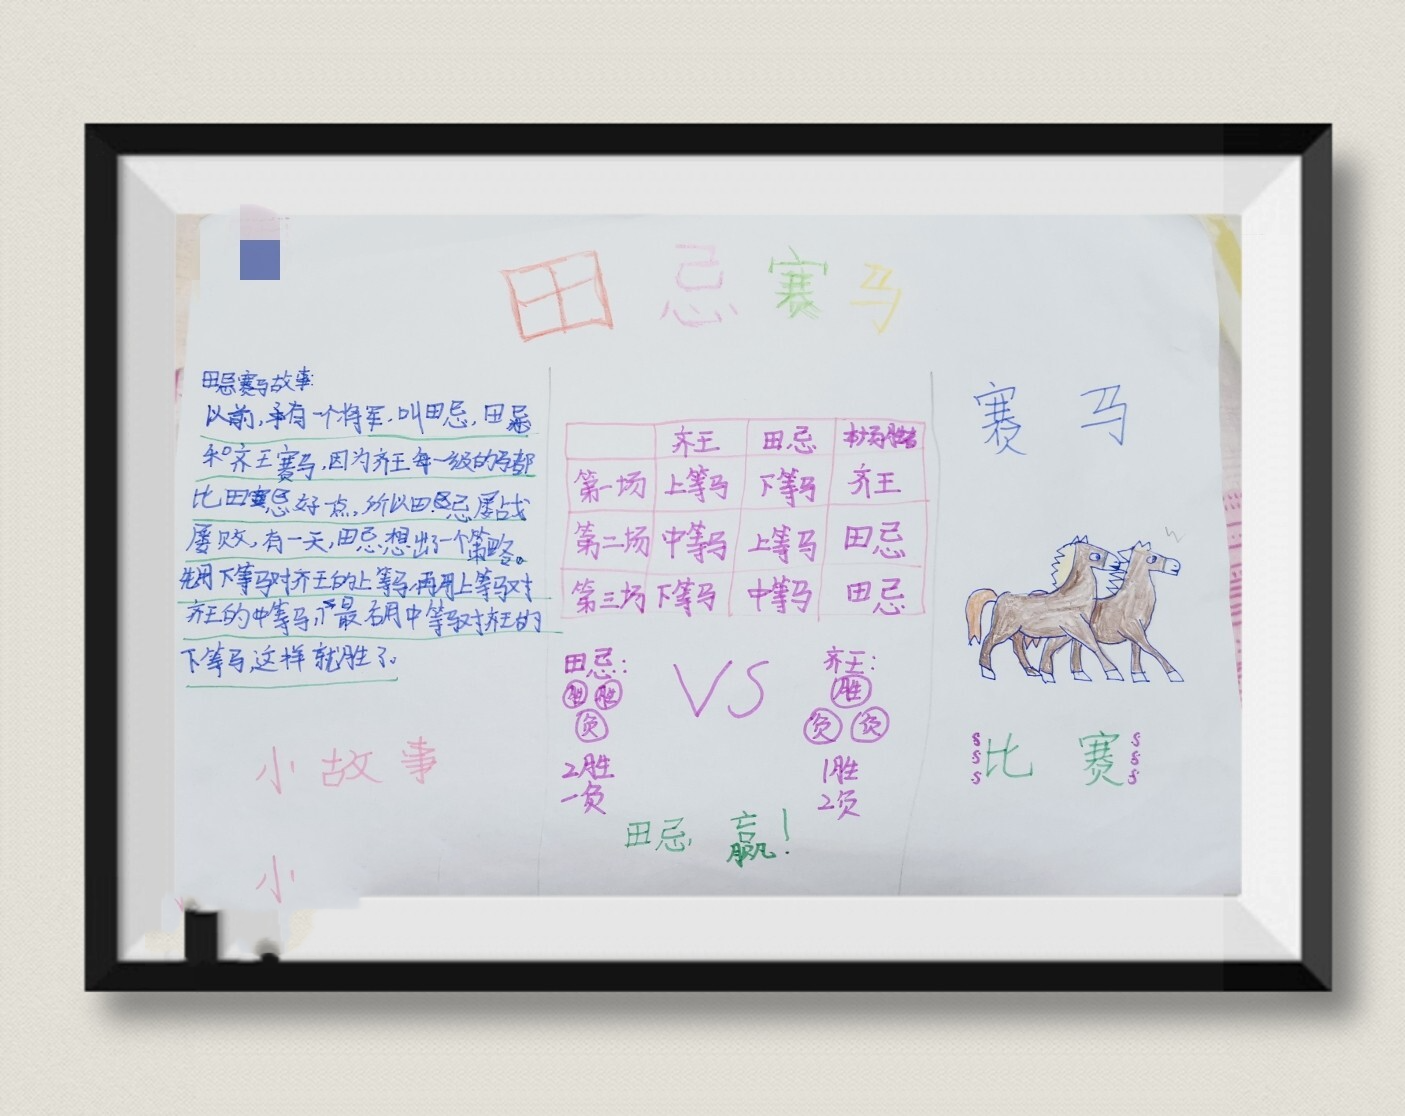 田忌赛马
田忌赛马故事:
以前,有一个将军,叫田忌,田忌
和齐王赛马,因为齐王每一级的马都
比田忌好一点,所以田忌屡战
屡败,有一天,田忌想出了一个策略。
先用下等马对齐王的上等马,再用上等马对
齐王的中等马,最后用中等马对齐王的
下等马,这样就胜了。
小故事
小
齐王 田忌 本场胜者
第一场 上等马 下等马 齐王
第二场 中等马 上等马 田忌
第三场 下等马 中等马 田忌
田忌: VS 齐王:
胜 胜 胜
负 负 负
2胜 1胜
一负 2负
田忌 赢!
赛马
比赛